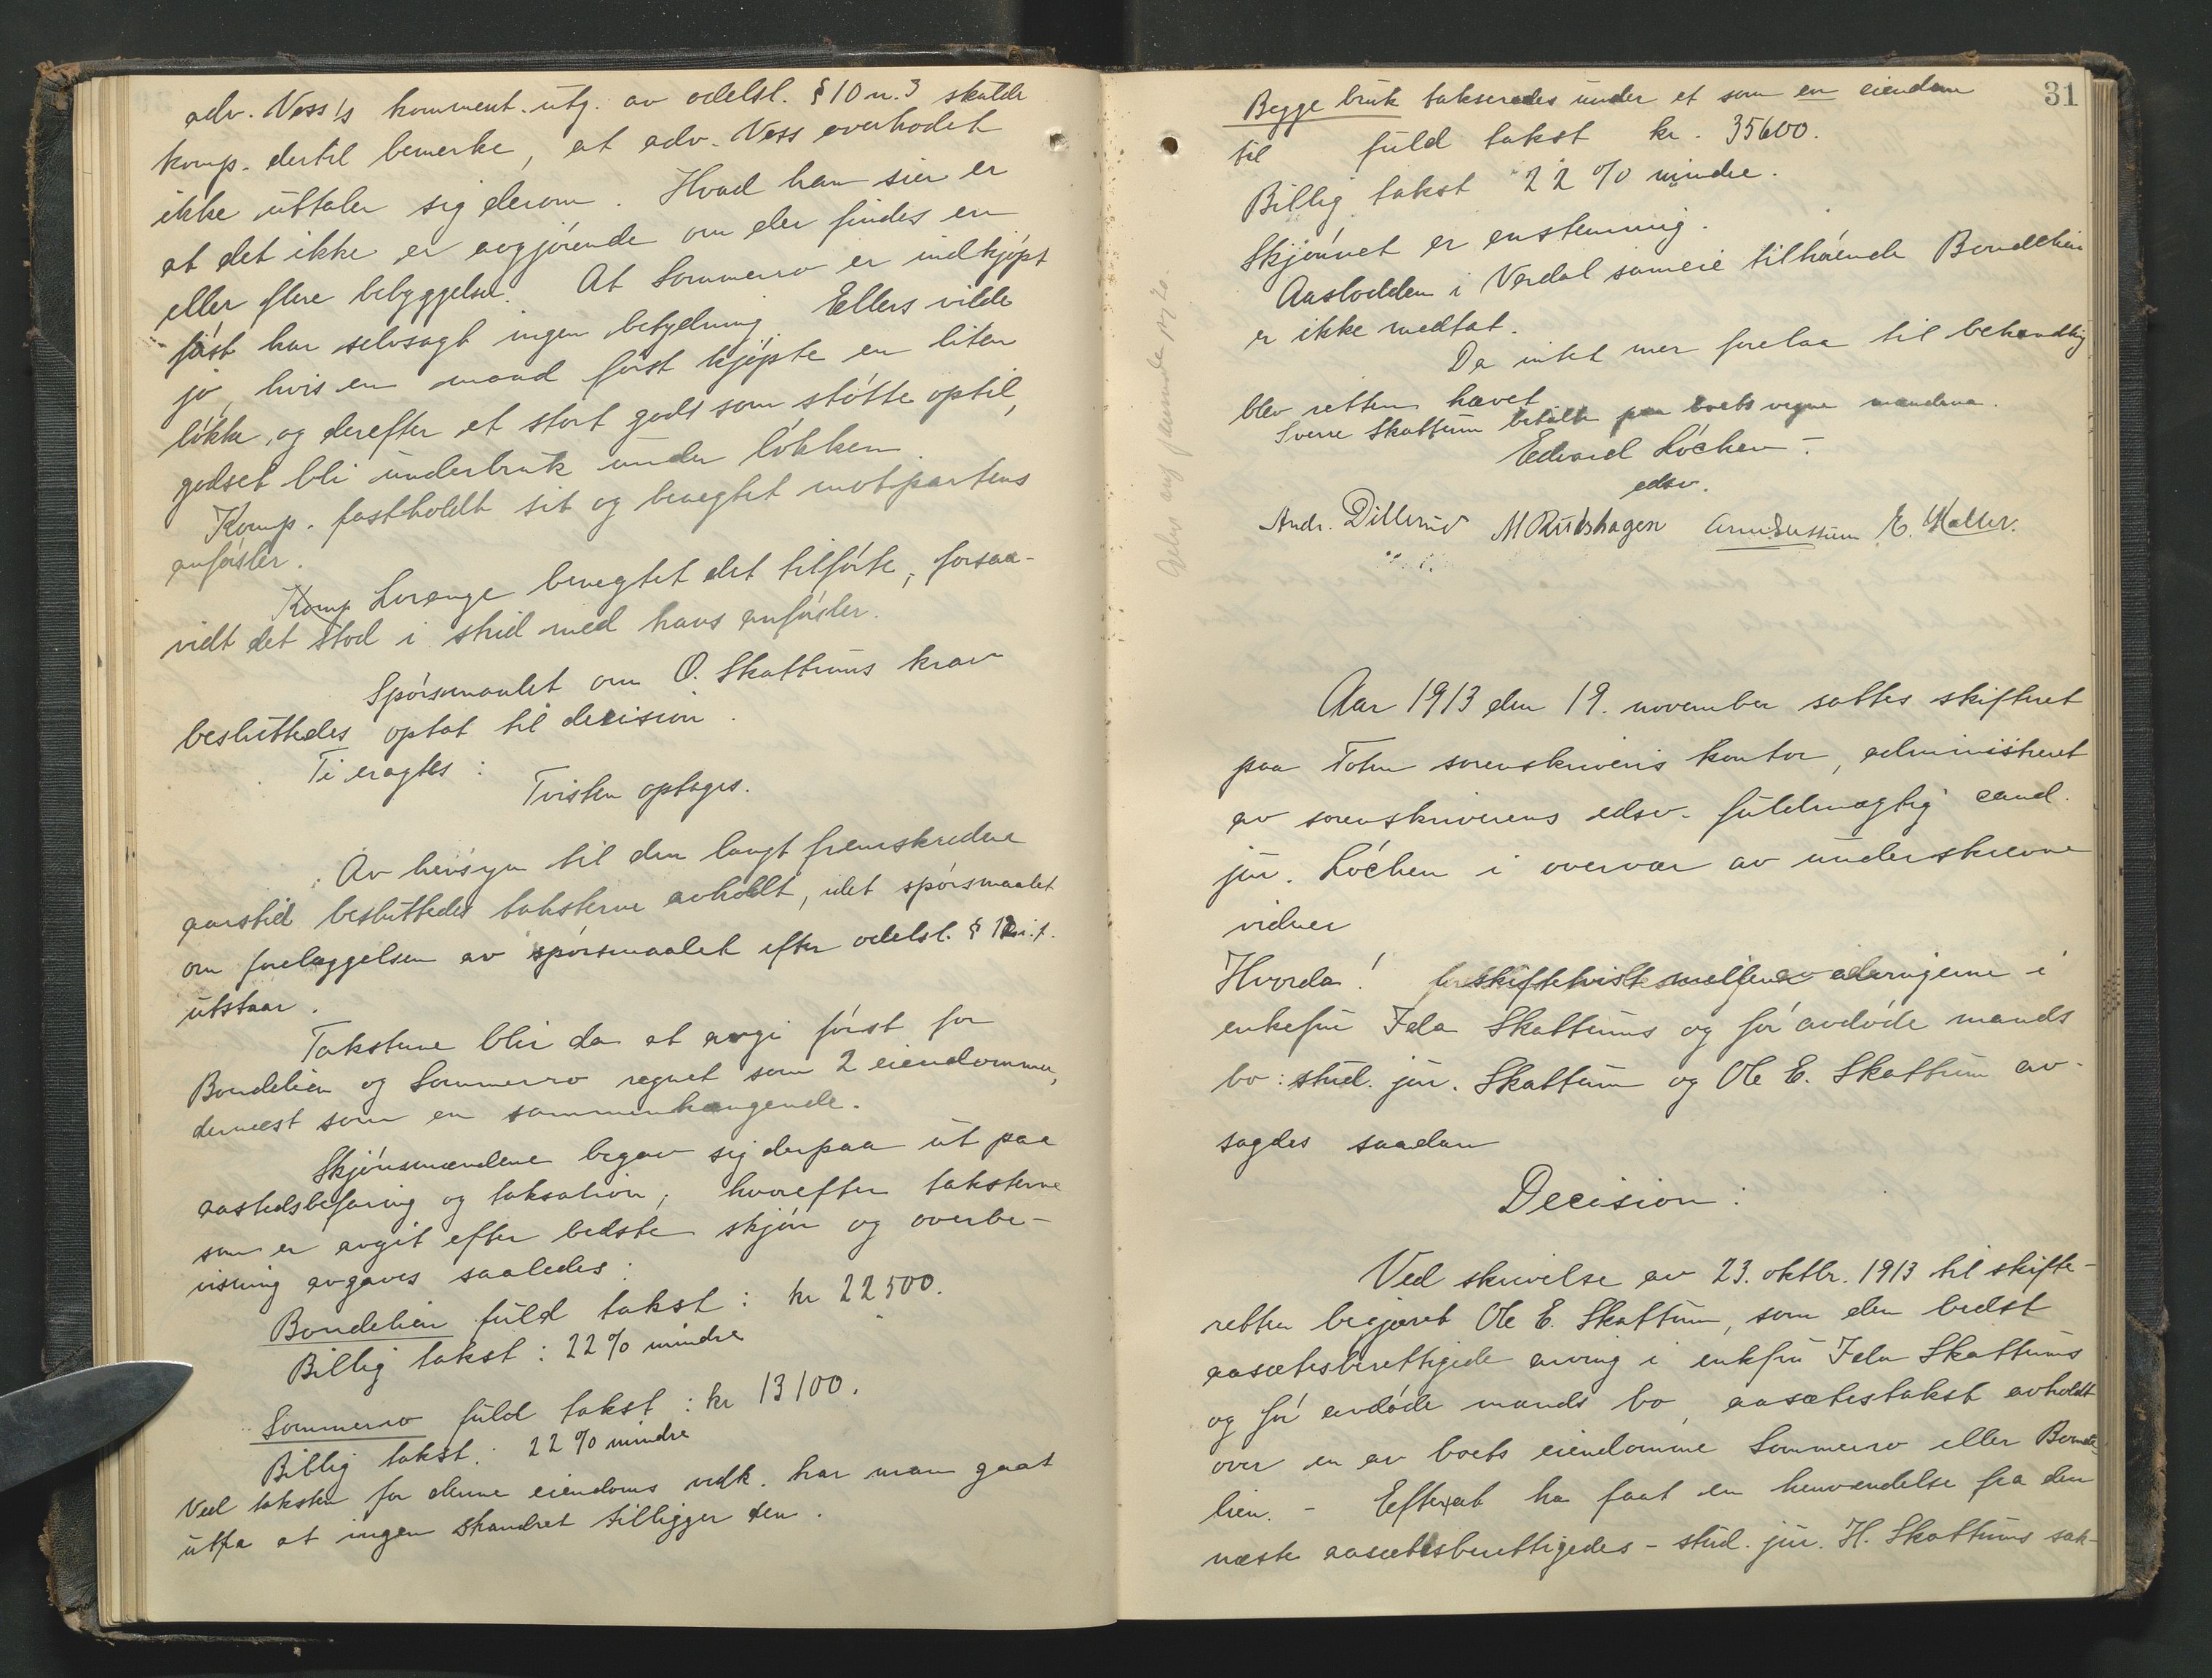 adv. Ness's komment. utg. av odelsl. § 10 n. 3 skulde
komp. dertil bemerke, at adv. Ness overhodet
ikke uttaler sig derom. Hvad han sier er
at det ikke er avgjørende om der findes en
eller flere bebyggelser. At Sommerro er indkjøpt
først har selvsagt ingen betydning. Ellers vilde
jo, hvis en mand først kjøpte en liten
løkke, og derefter et stort gods som støtte optil,
godset bli underbruk under løkken.
Komp. fastholdt sit og benegtet motpartens
anførsler.
Komp Lorange benegtet det tilførte, forsaa-
vidt det stod i strid med hans anførsler.
Spørsmaalet om O. Skattums krav
besluttedes optat til decision.
Ti eragtes:
Tvisten optages.
Av hensyn til den langt fremskredne
aarstid besluttedes taksterne avholdt, idet spørsmaalet
om foreleggelsen av spørsmaalet efter odelsl. § 12 i. f.
utstaar.
Taksterne blir da at avgi først for
Bondelien og Sommerro regnet som 2 eiendomme,
dernæst som en sammenhængende.
Skjønsmændene begav sig derpaa ut paa
aastedsbefaring og taksation, hvorefter taksterne
som er avgit efter bedste skjøn og overbe-
visning avgaves saaledes:
Bondelien fuld takst: kr 22500.
Billig takst: 22% mindre
Sommerro fuld takst: kr 13100.
Billig takst: 22% mindre
Ved taksten for denne eiendoms vedk. har man gaat
ut fra at ingen strandret tilligger den.
31
Begge bruk takseredes under et som en eiendom
til fuld takst kr. 35600.
Billig takst 22% mindre.
Skjønnet er enstemmig.
Aaslodden i Verdal sameie tilhørende Bondelien
er ikke medtat.
Da intet mer forelaa til behandling
blev retten hævet
Sverre Skattum betalte paa boets vegne mændene.
Edvard Løchen -
edsv.
Andr. Dillerud M Rudshagen E. Møller.
Aar 1913 den 19. november sattes skifteret
paa Toten sorenskriveris kontor, administreret
av sorenskriverens edsv. fuldmægtig cand.
jur. Løchen i overvær av underskrevne
vidner
Hvorda! i skiftetvist mellem arvingerne i
enkefru Ida Skattums og før avdøde mands
bo: stud. jur. Skattum og Ole E. Skattum av-
sagdes saadan
Decision:
Ved skrivelse av 23. oktbr. 1913 til skifte-
retten begjæret Ole E. Skattum, som den bedst
aasætesberettigede arving i enkefru Ida Skattums
og før avdøde mands bo, aasætestakst avholdt
over en av boets eiendomme Sommerro eller Bonde-
lien. - Efter at ha faat en henvendelse fra den
næste aasætesberettigedes - stud. jur. H. Skattums sak-